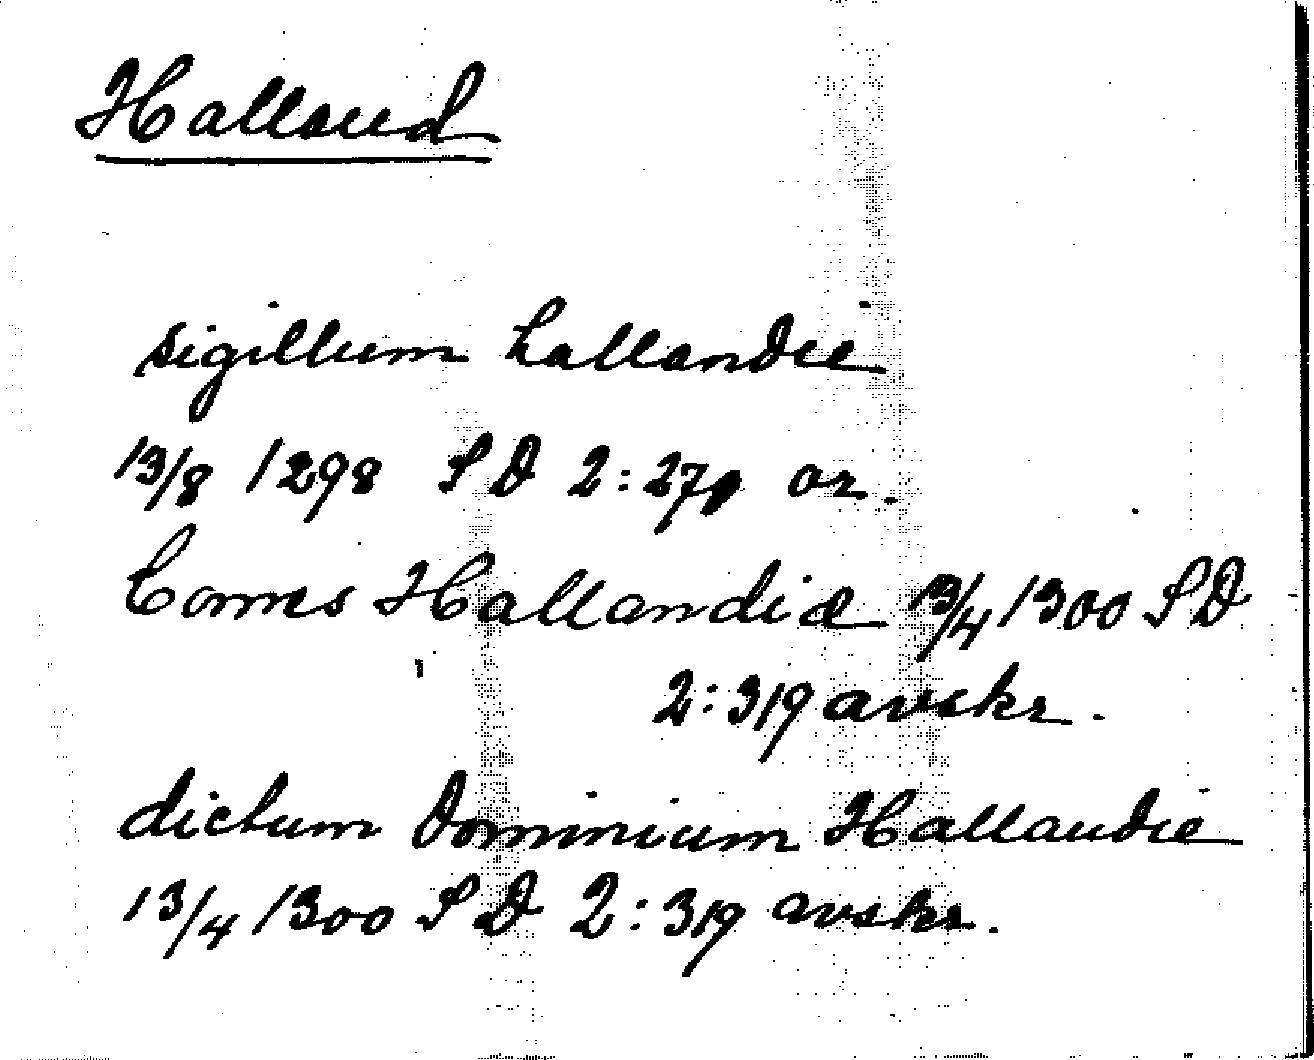 Halland
sigillum hallandie
13/8 1298 SD 2:279 or.
Comes Hallandiæ 13/4 1300 SD
2:319 avskr.
dictum Dominium Hallandie
13/4 1300 SD 2:319 avskr.